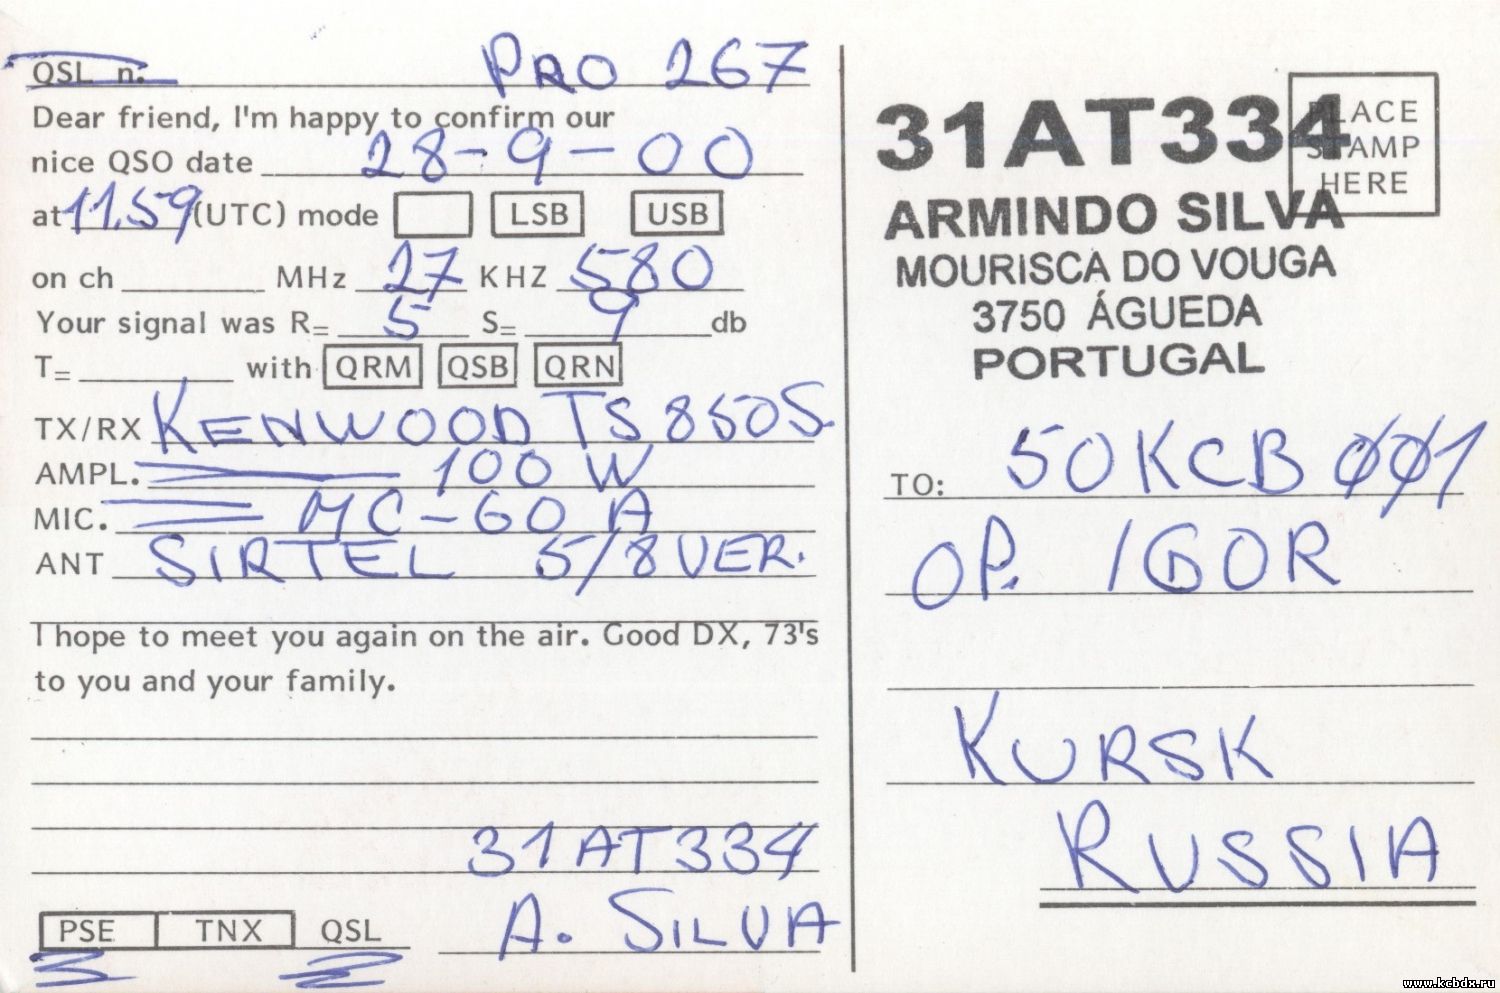 QSL n. PRO 267
Dear friend, I'm happy to confirm our
nice QSO date 28-9-00
at 11.59 (UTC) mode LSB USB
on ch MHz 27 KHZ 580
Your signal was R= 5 S= 9 db
T= with QRM QSB QRN
TX/RX KENWOOD TS 850S
AMPL. 100 W
MIC. MC-60 A
ANT SIRTEL 5/8 VER.
I hope to meet you again on the air. Good DX, 73's
to you and your family.
31AT334
PSE TNX QSL A. SILVA
PLACE
STAMP
HERE
31AT334
ARMINDO SILVA
MOURISCA DO VOUGA
3750 ÁGUEDA
PORTUGAL
TO: 50KCBØØ1
OP. IGOR
KURSK
RUSSIA
www.kcbdx.ru